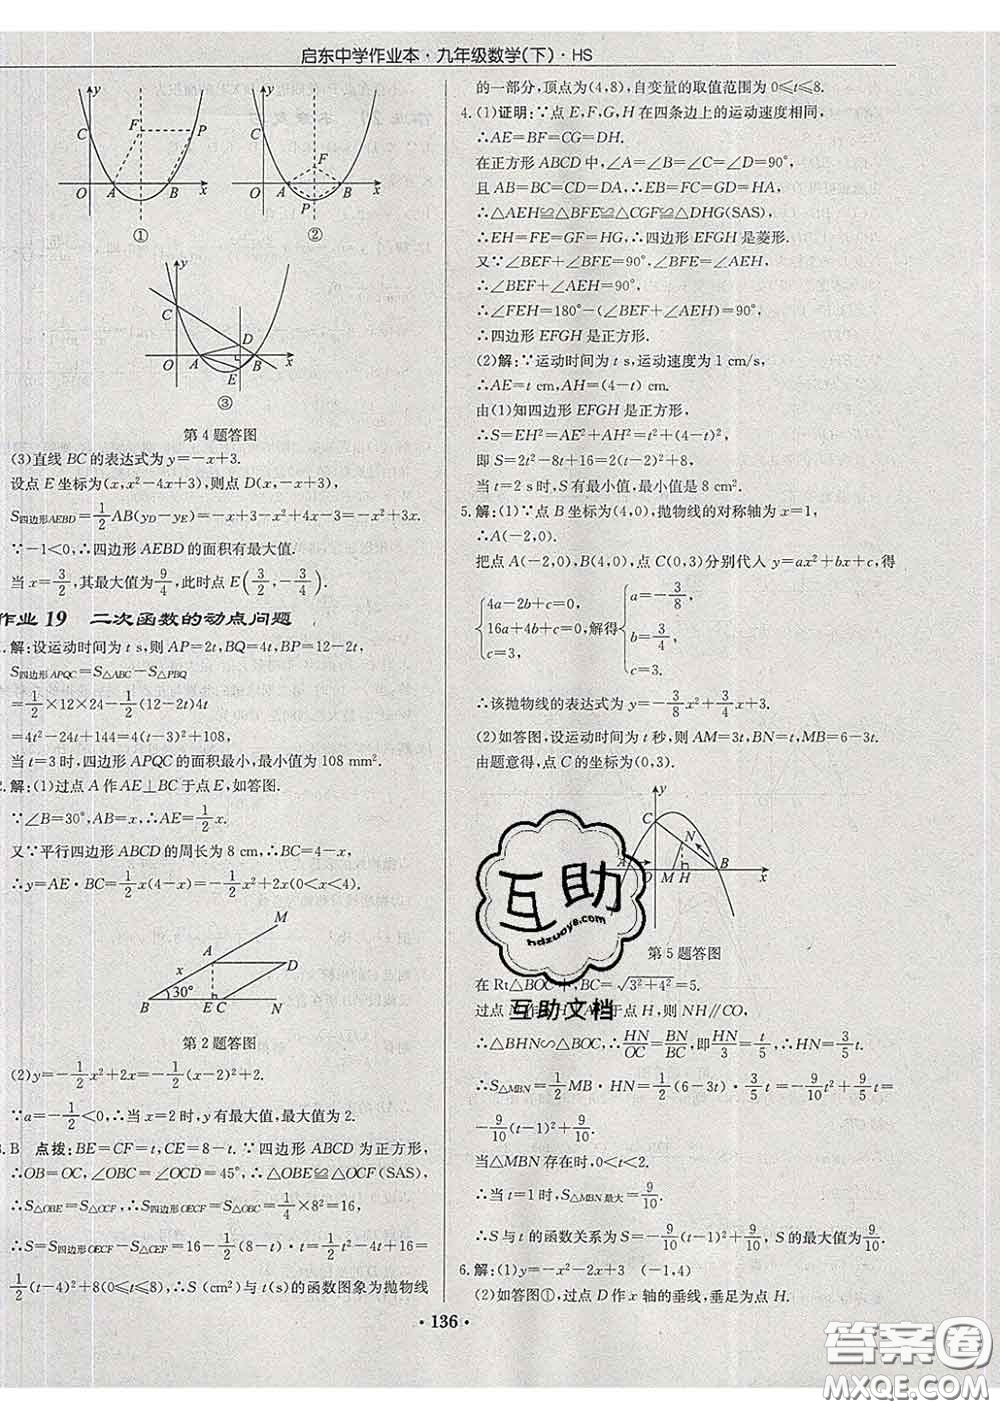 启东中学作业本·九年级数学(下)·HS
y
C
F
P
O
A
B
x
①
y
C
F
O
A
B
P
x
②
y
C
D
O
A
B
E
x
③
第4题答图
(3)直线BC的表达式为y=-x+3.
设点E坐标为(x,x²-4x+3),则点D(x,-x+3),
S四边形AEBD=1/2AB(yD-yE)=-x+3-x²+4x-3=-x²+3x.
∵-1<0,∴四边形AEBD的面积有最大值.
当x=3/2,其最大值为9/4,此时点E(3/2,-3/4).
作业19 二次函数的动点问题
解:设运动时间为t s,则AP=2t,BQ=4t,BP=12-2t,
S四边形APQC=S△ABC-S△PBQ
=1/2×12×24-1/2(12-2t)4t
=4t²-24t+144=4(t-3)²+108,
当t=3时,四边形APQC的面积最小,最小值为108 mm².
2.解:(1)过点A作AE⊥BC于点E,如答图.
∵∠B=30°,AB=x,∴AE=1/2x.
又∵平行四边形ABCD的周长为8 cm,∴BC=4-x,
∴y=AE·BC=1/2x(4-x)=-1/2x²+2x(0<x<4).
M
A
D
x
30°
B
E
C
N
第2题答图
(2)y=-1/2x²+2x=-1/2(x-2)²+2.
∵a=-1/2<0,∴当x=2时,y有最大值,最大值为2.
3.B 点拨:BE=CF=t,CE=8-t.∵四边形ABCD为正方形,
∴OB=OC,∠OBC=∠OCD=45°,∴△OBE≌△OCF(SAS),
∴S△OBE=S△OCF,∴S四边形OECF=S△OBC=1/4×8²=16,
∴S=S四边形OECF-S△CEF=16-1/2(8-t)·t=1/2t²-4t+16=
1/2(t-4)²+8(0≤t≤8),∴S(cm²)与t(s)的函数图象为抛物线
的一部分,顶点为(4,8),自变量的取值范围为0≤t≤8.
4.(1)证明:∵点E,F,G,H在四条边上的运动速度相同,
∴AE=BF=CG=DH.
在正方形ABCD中,∠A=∠B=∠C=∠D=90°,
且AB=BC=CD=DA,∴EB=FC=GD=HA,
∴△AEH≌△BFE≌△CGF≌△DHG(SAS),
∴EH=FE=GF=HG,∴四边形EFGH是菱形.
又∵∠BEF+∠BFE=90°,∠BFE=∠AEH,
∴∠BEF+∠AEH=90°,
∴∠FEH=180°-(∠BEF+∠AEH)=90°,
∴四边形EFGH是正方形.
(2)解:∵运动时间为t s,运动速度为1 cm/s,
∴AE=t cm,AH=(4-t) cm.
由(1)知四边形EFGH是正方形,
∴S=EH²=AE²+AH²=t²+(4-t)²,
即S=2t²-8t+16=2(t-2)²+8,
当t=2 s时,S有最小值,最小值是8 cm².
5.解:(1)∵点B坐标为(4,0),抛物线的对称轴为x=1,
∴A(-2,0).
把点A(-2,0),B(4,0),点C(0,3)分别代人y=ax²+bx+c,得
{4a-2b+c=0, 16a+4b+c=0, c=3, 解得{a=-3/8, b=3/4, c=3,
∴该抛物线的表达式为y=-3/8x²+3/4x+3.
(2)如答图,设运动时间为t秒,则AM=3t,BN=t,MB=6-3t.
由题意得,点C的坐标为(0,3).
y
C
N
A
O
M
H
B
x
第5题答图
在Rt△BOC中,BC=√3²+4²=5.
过点N作NH⊥AB于点H,则NH∥CO,
∴△BHN∽△BOC,∴HN/OC=BN/BC,即HN/3=t/5,∴HN=3/5t.
∴S△MBN=1/2MB·HN=1/2(6-3t)·3/5t=-9/10t²+9/5t=
-9/10(t-1)²+9/10.
当△MBN存在时,0<t<2.
∴当t=1时,S△MBN最大=9/10.
∴S与t的函数关系为S=-9/10(t-1)²+9/10,S的最大值为9/10.
6.解:(1)y=-x²-2x+3 (-1,4)
(2)如答图①,过点D作x轴的垂线,垂足为点H.
·136·
互助
hdzuoye.com
互助文档
答案圈
MXQE.COM